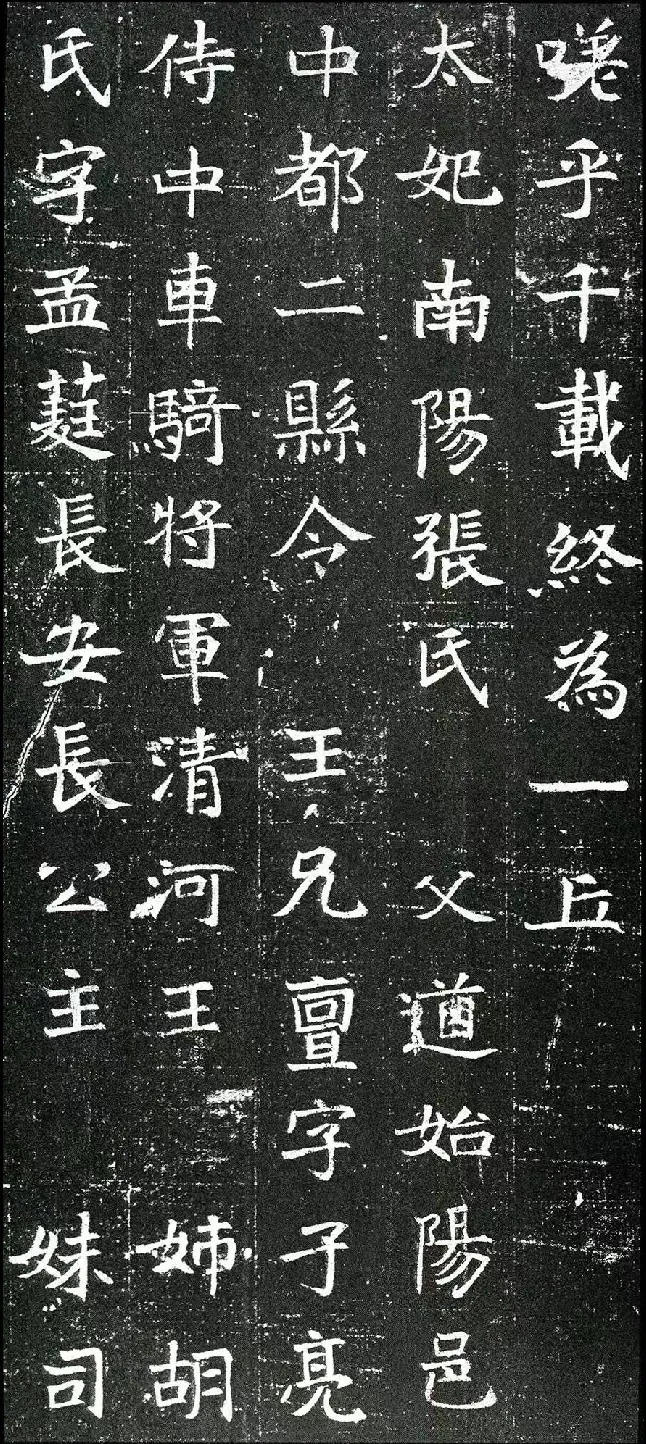 嗟乎千載終為一丘
太妃南陽張氏　父遒始陽邑
中都二縣令　王兄亶字子亮
侍中車騎將軍清河王　姉胡
氏字孟蕤長安長公主　妹司